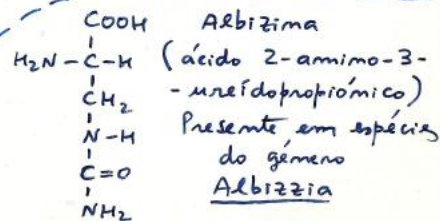 COOH
H₂N-C-H
CH₂
N-H
C=O
NH₂
Albizima
(ácido 2-amimo-3-
-ureídopropiómico)
Presente em espécies
do gémero
Albizzia